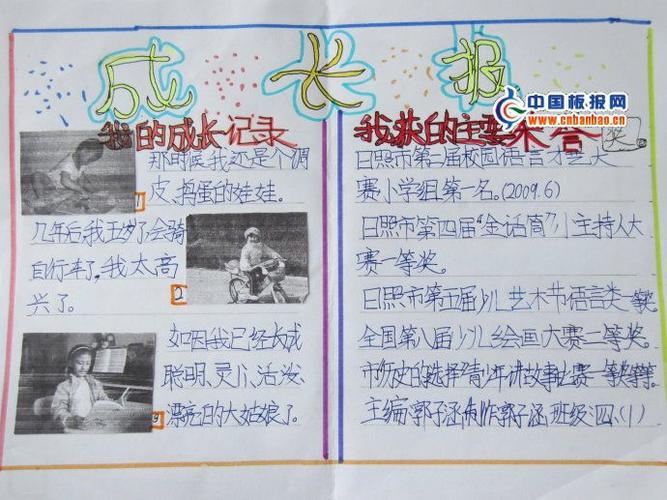 成长报
中国板报网
www.cnbanbao.cn
我的成长记录
那时候,我还是个调
皮、捣蛋的娃娃。
1
几年后,我五岁了会骑
自行车了,我太高
兴了。
2
如因我已经长成
聪明、灵儿、活泼、
漂亮的大姑娘了。
3
我获的主要荣誉
奖
日照市第二届校园语言才艺大
赛小学组第一名。(2009.6)
日照市第四届“金话筒”小主持人大
赛一等奖。
日照市第五届少儿艺术节语言类一等奖
全国第八届少儿绘画大赛二等奖。
市“历史的选择”青少年讲故事比赛一等奖等。
主编:郭子涵 制作:郭子涵 班级:四、(1)